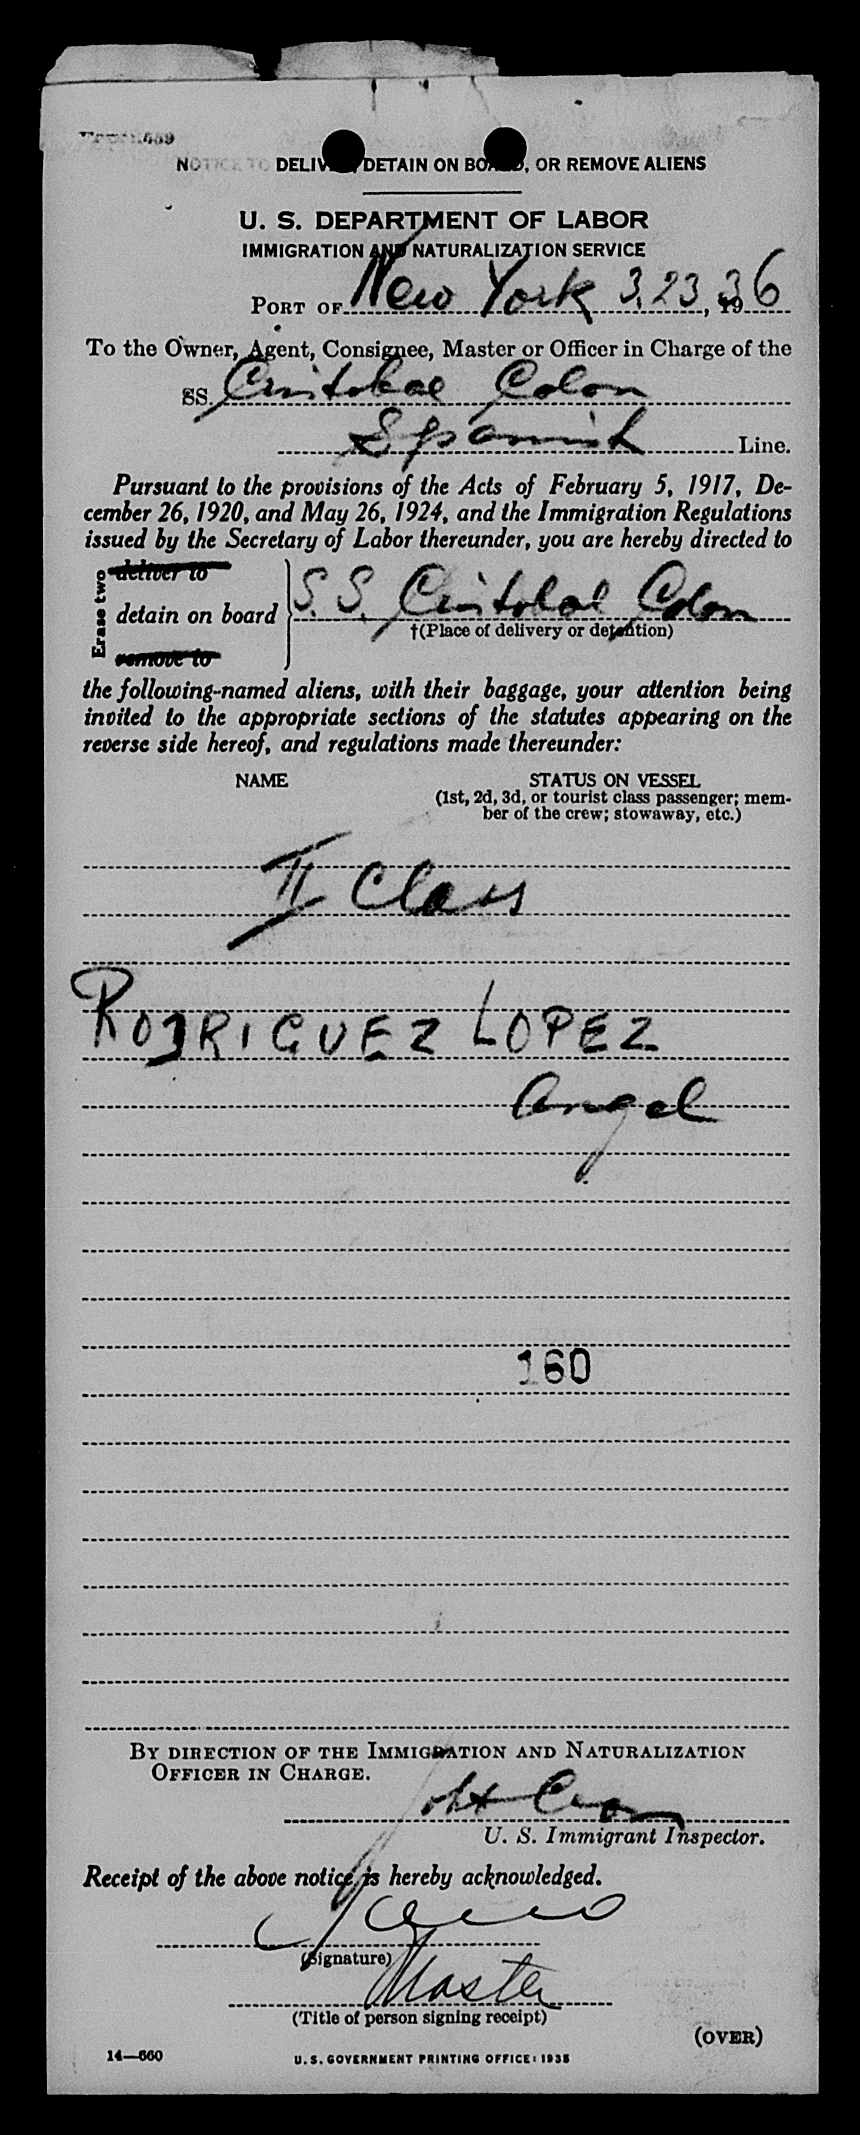 NOTICE TO DELIVER, DETAIN ON BOARD, OR REMOVE ALIENS
U. S. DEPARTMENT OF LABOR
IMMIGRATION AND NATURALIZATION SERVICE
PORT OF New York 3.23, 1936
To the Owner, Agent, Consignee, Master or Officer in Charge of the
SS Cristobal Colon
Spanish Line.
Pursuant to the provisions of the Acts of February 5, 1917, De-
cember 26, 1920, and May 26, 1924, and the Immigration Regulations
issued by the Secretary of Labor thereunder, you are hereby directed to
Erase two
deliver to
detain on board S. S. Cristobal Colon
†(Place of delivery or detention)
remove to
the following-named aliens, with their baggage, your attention being
invited to the appropriate sections of the statutes appearing on the
reverse side hereof, and regulations made thereunder:
NAME STATUS ON VESSEL
(1st, 2d, 3d, or tourist class passenger; mem-
ber of the crew; stowaway, etc.)
II Class
RODRIGUEZ LOPEZ
Angel
160
BY DIRECTION OF THE IMMIGRATION AND NATURALIZATION
OFFICER IN CHARGE.
U. S. Immigrant Inspector.
Receipt of the above notice is hereby acknowledged.
(Signature)
Master
(Title of person signing receipt)
(OVER)
14—660 U. S. GOVERNMENT PRINTING OFFICE: 1935